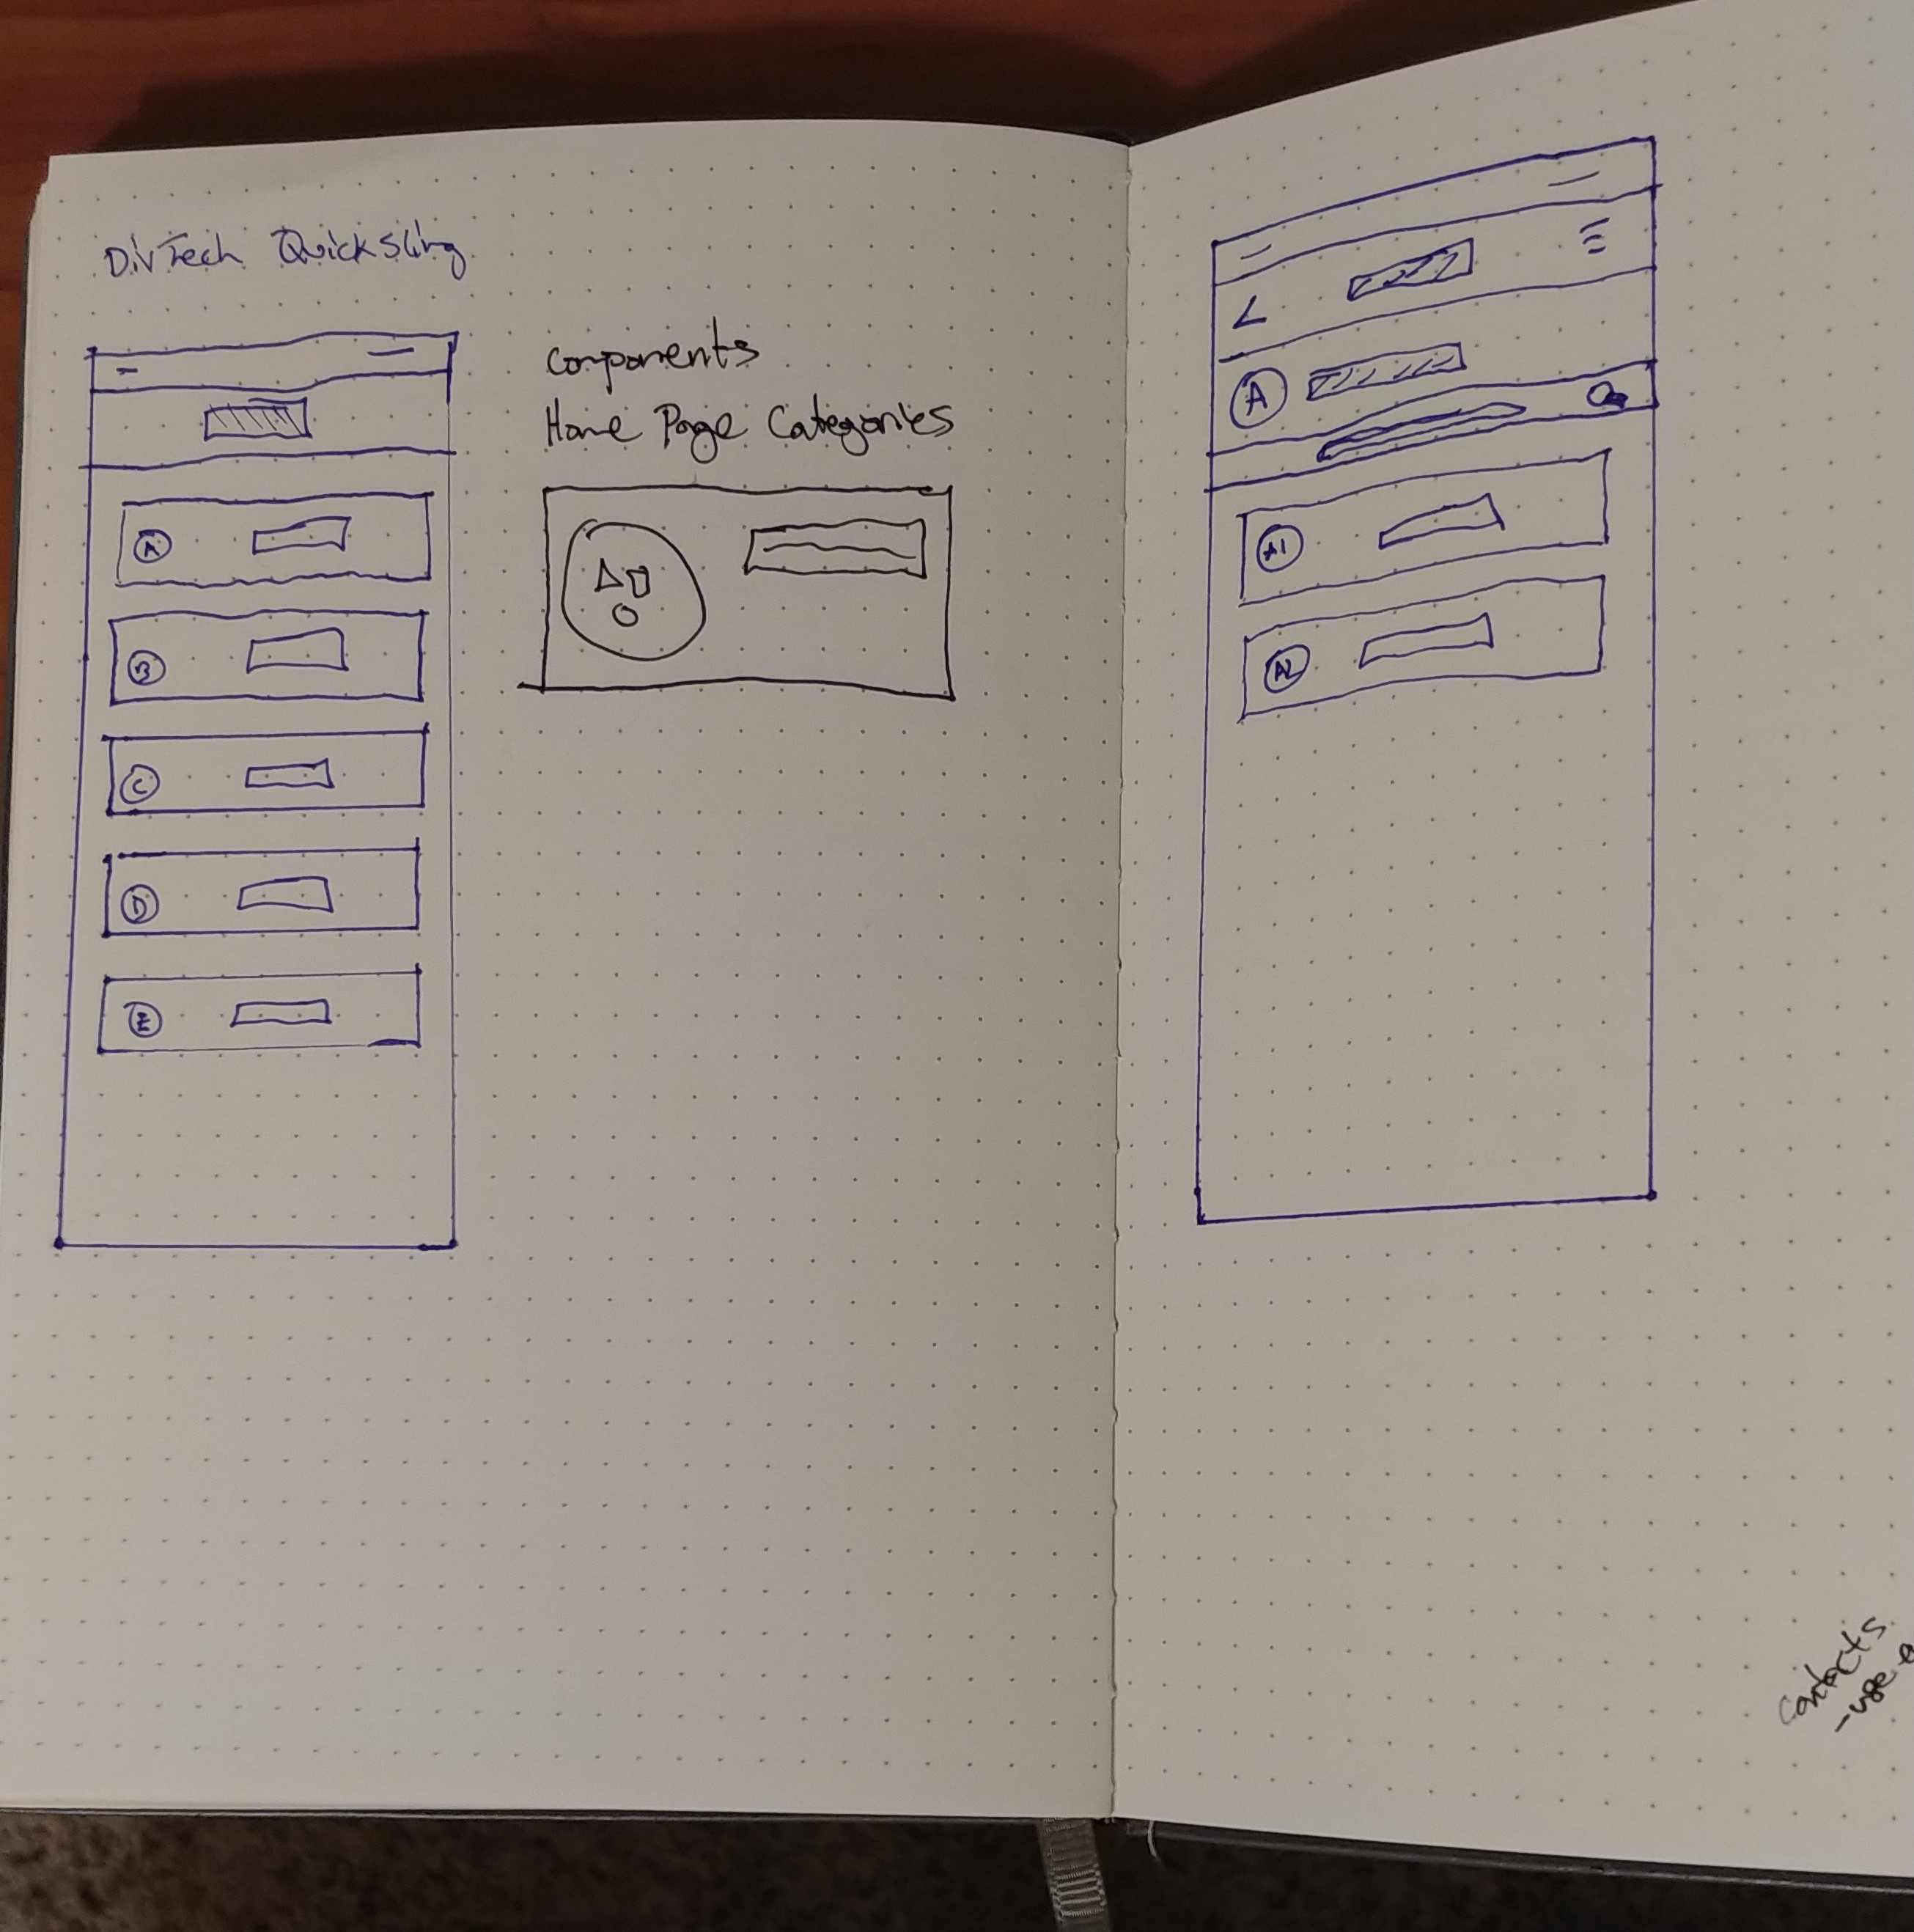 DivTech QuickSling
Components
Home Page Categories
A
B
C
D
E
A
A1
A2
Contacts
-use